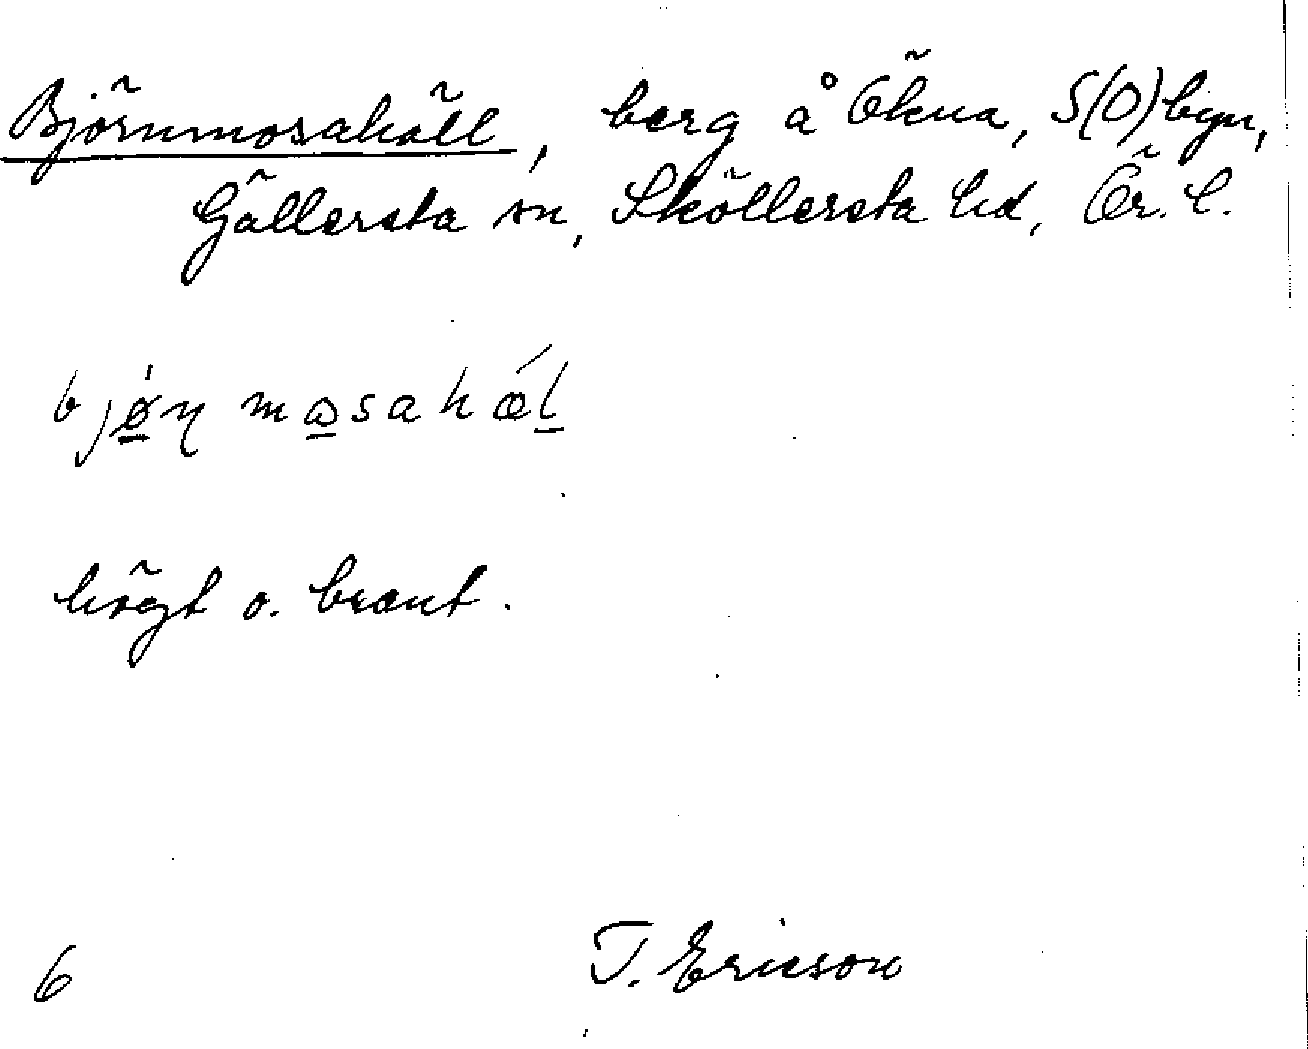 Björnmosahäll, berg å Ökna, S(Ö)byn,
Gällersta sn, Sköllersta hd, Ör. l.
bjø̲ɳ mɷ̲sahǽl̲
högt o. brant.
6 T. Ericson